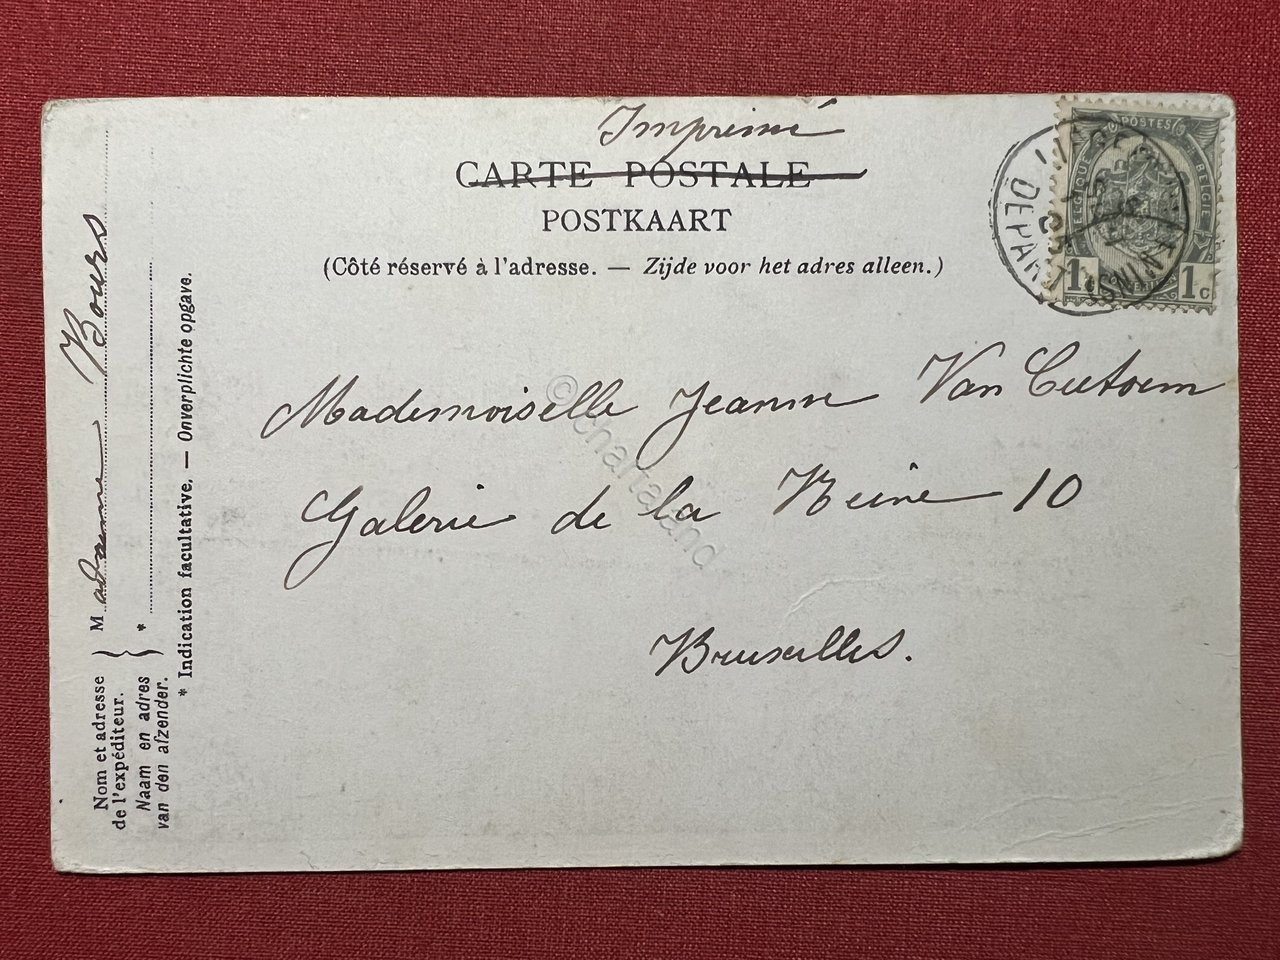 Imprimé
CARTE POSTALE
POSTKAART
(Côté réservé à l'adresse. — Zijde voor het adres alleen.)
POSTES
BELGIQUE BELGIE
1c 1c
DEPART
Mademoiselle Jeanne Van Cutsem
Galerie de la Reine 10
Bruxelles.
Nom et adresse
de l'expéditeur.
Naam en adres
van den afzender.
Madame Bours
*
* Indication facultative. — Onverplichte opgave.
© chartaland